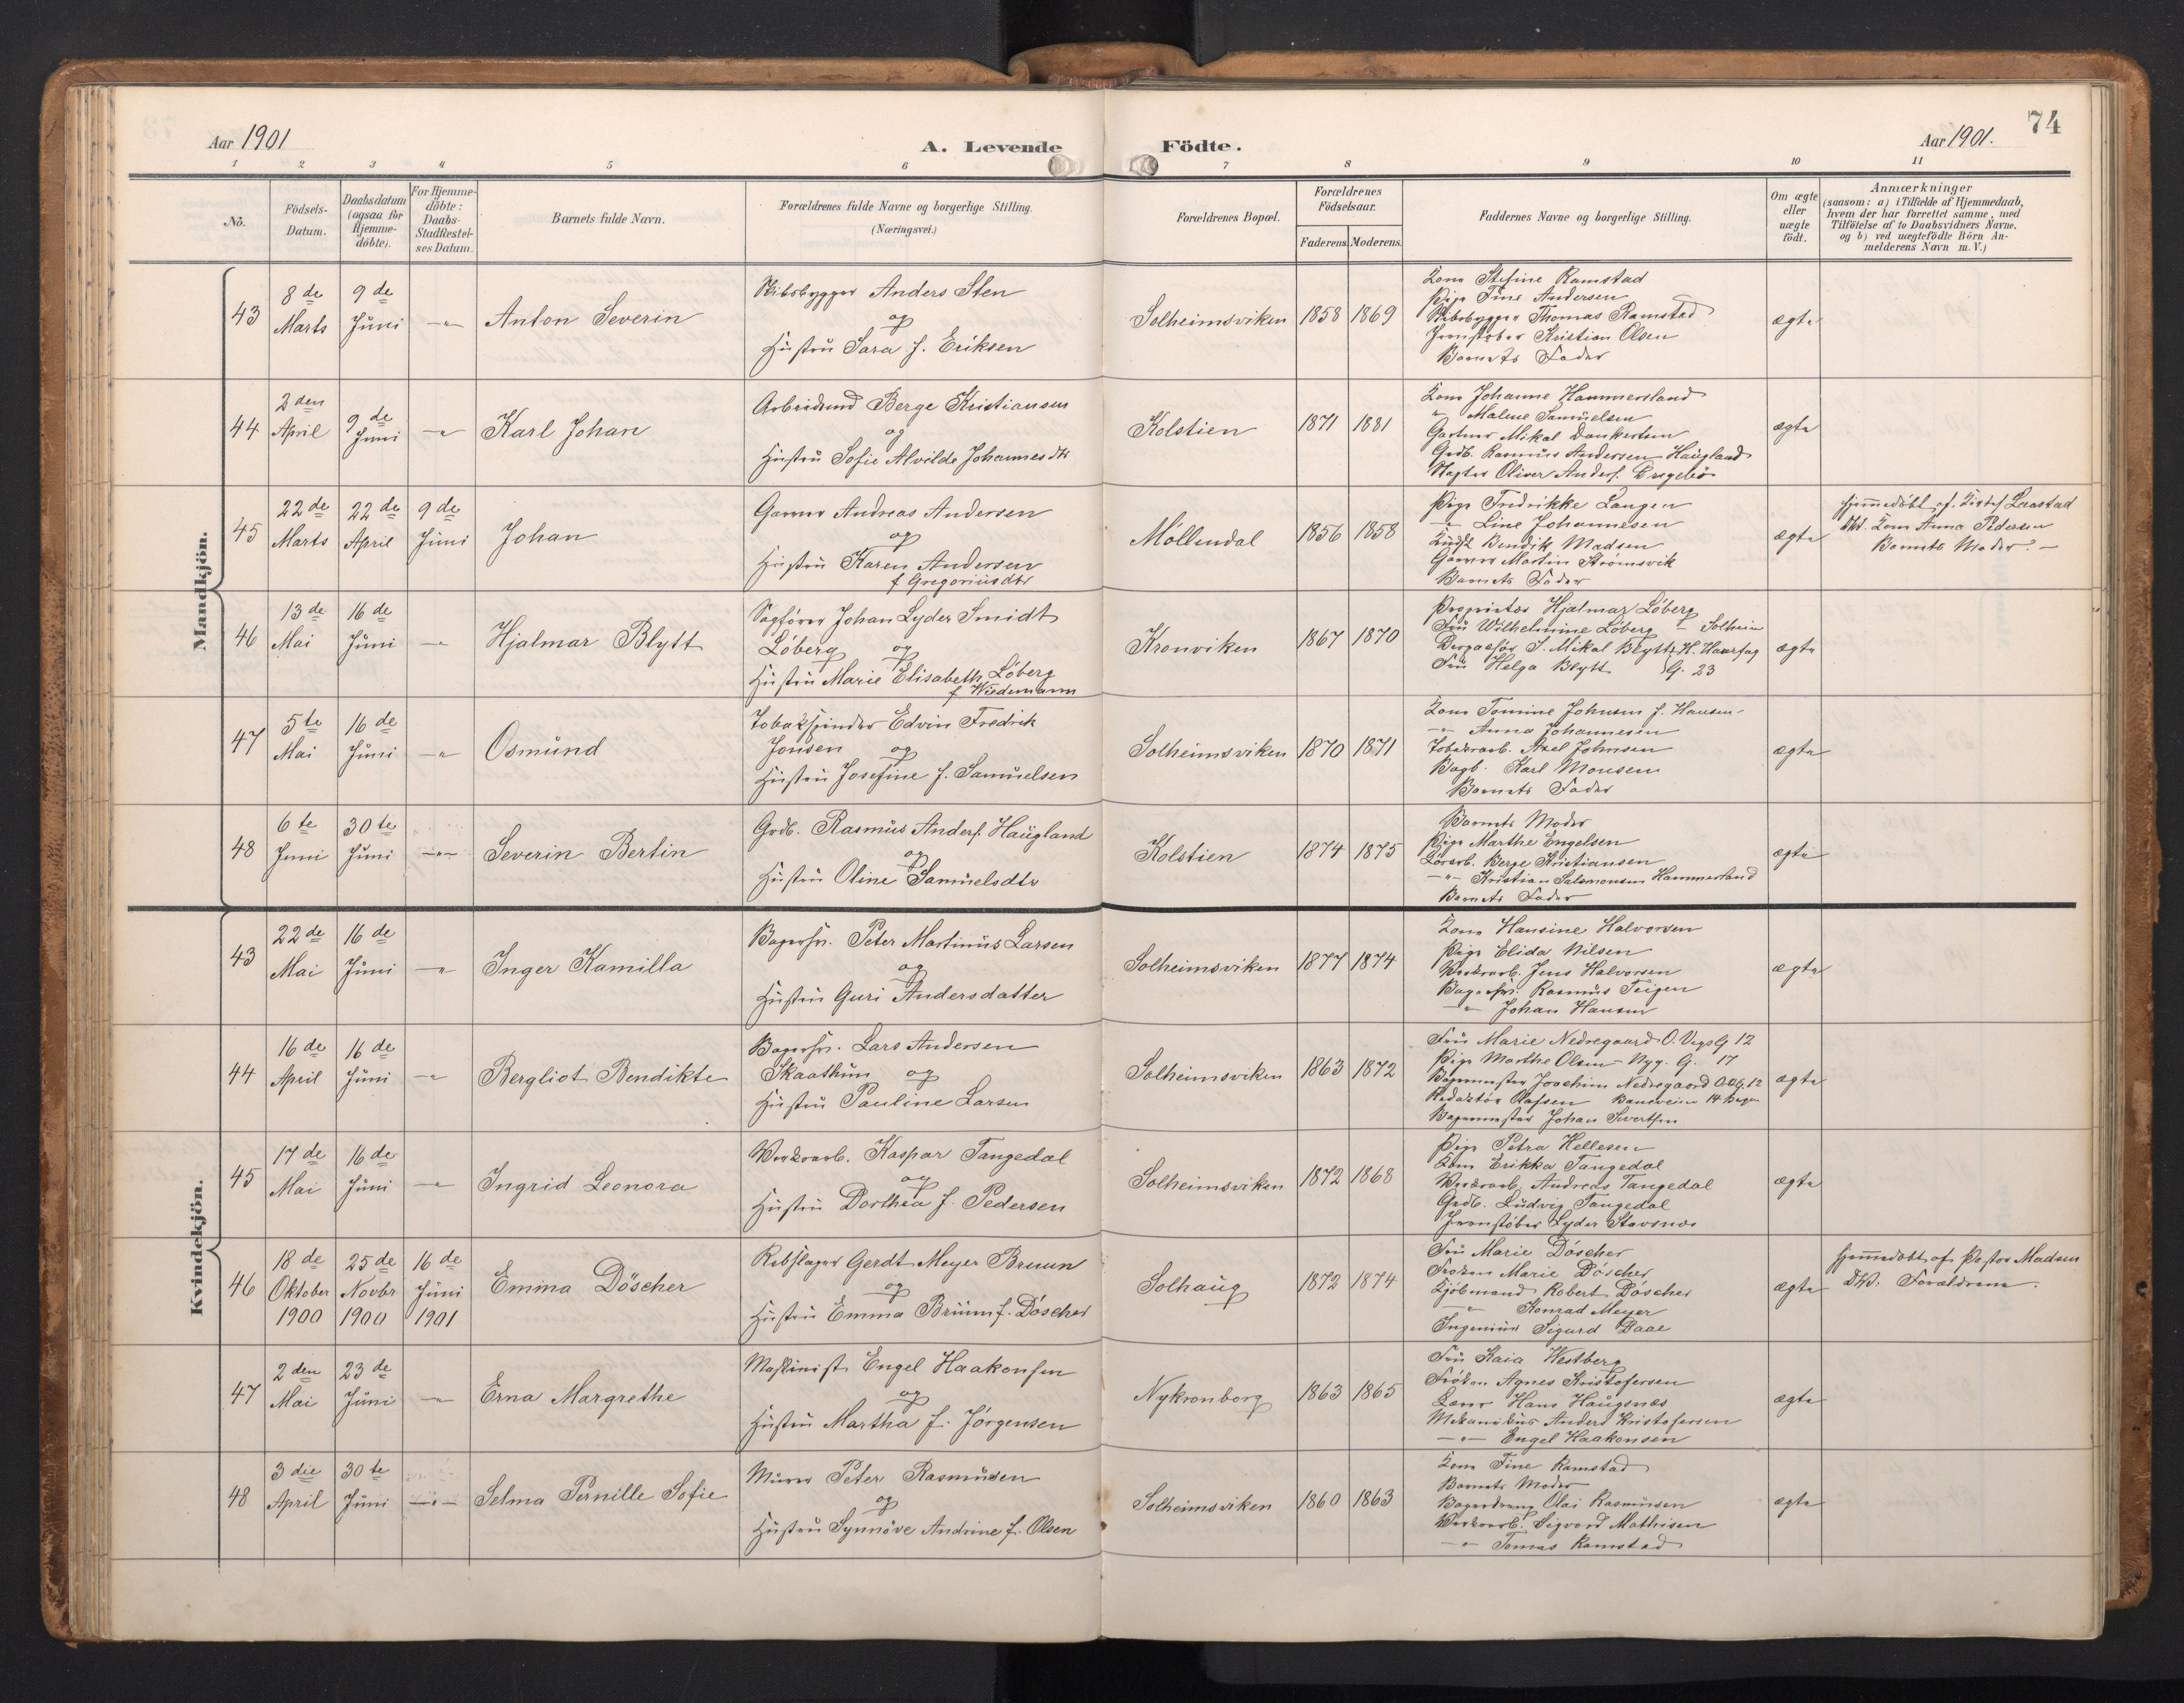 Aar 1901
A. Levende Födte.
Aar 1901.
74
1 2 3 4 5 6 7 8 9 10 11
No.
Födsels-
Datum.
Daabsdatum
(ogsaa for
Hjemme-
döbte).
For Hjemme-
döbte:
Daabs-
Stadfæstel-
ses Datum.
Barnets fulde Navn.
Forældrenes fulde Navne og borgerlige Stilling.
(Næringsvei.)
Forældrenes Bopæl.
Forældrenes
Födselsaar.
Faderens. Moderens.
Faddernes Navne og borgerlige Stilling.
Om ægte
eller
uægte
födt.
Anmærkninger
(saasom: a) i Tilfælde af Hjemmedaab,
hvem der har forrettet samme, med
Tilföielse af to Daabsvidners Navne,
og b) ved uægtefödte Börn An-
melderens Navn m. V.)
Mandkjön.
43
8de
Marts
9de
Juni
-"-
Anton Severin
Skibsbygger Anders Sten
og
Hustru Sara f. Eriksen
Solheimsviken
1858
1869
Kone Stefine Ramstad
Pige Tine Andersen
Skibsbygger Thomas Ramstad
Jernstøber Kristian Olsen
Barnets Fader
ægte
44
2den
April
9de
Juni
-"-
Karl Johan
Arbeidsmd Berge Kristiansen
og
Hustru Sofie Alvilde Johannesdtr
Kolstien
1871
1881
Kone Johanne Hammersland
" Malene Samuelsen
Gartner Mikal Dankertsen
Grdb. Rasmus Andersen Haugland
Slagter Oliver Anders.
ægte
45
22de
Marts
22de
April
9de
Juni
Johan
Garver Andreas Andersen
og
Hustru Karen Andersen
f Gregoriusdtr
Møllendal
1856
1858
Pige Fredrikke Langen
-"- Line Johannesen
Kudsk Bendik Madsen
Garver Martin Strømsvik
Barnets Fader
ægte
Hjemmedöbt af Distrf Leastad
Dvt. Kone Anna Pedersen
Barnets Moder. -
46
13de
Mai
16de
Juni
-"-
Hjalmar Blytt
Sagfører Johan Lyder Smidt
Löberg og
Hustru Marie Elisabeth Löberg
f Wiedemann
Kronviken
1867
1870
Proprietær Hjalmar Löberg
Fru Wilhelmine Löberg - Solheim
Dispachör S. Mikal Blytt H. Haarfag
Fru Helga Blytt G. 23
ægte
47
5te
Mai
16de
Juni
-"-
Osmund
Tobakspinder Edvin Fredrik
Jonsen og
Hustru Josefine f. Samuelsen
Solheimsviken
1870
1871
Kone Tomine Johnsen f. Hansen
-"- Anna Johannesen
Tobaksarb. Axel Johnsen
Bogb. Karl Monsen
Barnets Fader
ægte
48
6te
Juni
30te
Juni
-"-
Severin Bertin
Grdb. Rasmus Anders. Haugland
og
Hustru Oline Samuelsdtr
Kolstien
1874
1875
Barnets Moder
Pige Marthe Engelsen
Berge Kristiansen
-"- Kristian Salomonsen Hammersland
Barnets Fader
ægte
Kvindekjön.
43
22de
Mai
16de
Juni
-"-
Inger Kamilla
Bagersv. Peter Martinus Larsen
og
Hustru Guri Andersdatter
Solheimsviken
1877
1874
Kone Hansine Halvorsen
Pige Elida Nilsen
Verksarb. Jens Halvorsen
Bagersv. Rasmus Teigen
-"- Johan Hansen
ægte
44
16de
April
16de
Juni
-"-
Bergliot Bendikte
Bagersv. Lars Andersen
Skaathun og
Hustru Pauline Larsen
Solheimsviken
1863
1872
Fru Marie Nedregaard O. VegsG 12
Pige Marthe Olsen Nyg. G. 17
Bagermester Joachim Nedregaard O.V.G. 12
Redaktör Olafsen Baneveien 14 Bergen
Bagermester Johan Sivertsen
ægte
45
17de
Mai
16de
Juni
-"-
Ingrid Leonora
Verksarb. Kaspar Tangedal
og
Hustru Dorthea f. Pedersen
Solheimsviken
1872
1868
Pige Petra Hellesen
Kone Erikka Tangedal
Verksarb. Andreas Tangedal
Grdb. Ludvig Tangedal
Jernstöber Lyder Stavsnes
ægte
46
18de
Oktober
1900
25de
Novbr
1900
16de
Juni
1901
Emma Döscher
Rebslager Gerdt Meyer Bruun
og
Hustru Emma Bruun f. Döscher
Solhaug
1872
1874
Fru Marie Döscher
Froken Marie Döscher
Kjöbmand Robert Döscher
-"- Konrad Meyer
Ingeniör Sigurd Daae
ægte
Hjemmedöbt af Pastor Madsen
Dvt. Forældrene.
47
2den
Mai
23de
Juni
-"-
Erna Margrethe
Maskinist Engel Haakonsen
og
Hustru Martha f. Jørgensen
Nykronborg
1863
1865
Fru Kaia Westberg
Fröken Agnes Kristofersen
Lærer Hans Haugsnæs
Mekanikus Anders Kristofersen
-"- Engel Haakonsen
ægte
48
3die
April
30te
Juni
-"-
Selma Pernille Sofie
Murer Peter Rasmussen
og
Hustru Synnöve Andrine f. Olsen
Solheimsviken
1860
1863
Kone Tine Ramstad
Barnets Moder
Bagerdreng Olai Rasmusen
Verksarb. Sigvard Mathisen
-"- Tomas Ramstad
ægte